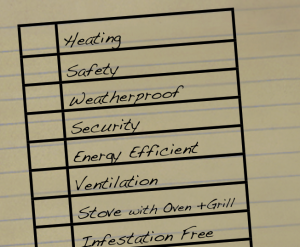 Heating
Safety
Weatherproof
Security
Energy Efficient
Ventilation
Stove with Oven + Grill
Infestation Free